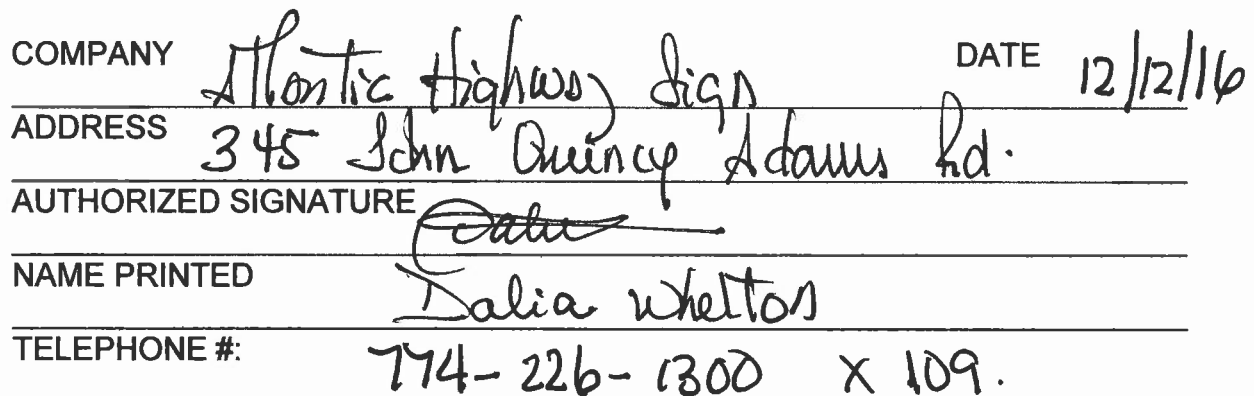 COMPANY Atlantic Highway Sign DATE 12/12/16
ADDRESS 345 John Quincy Adams Rd.
AUTHORIZED SIGNATURE
NAME PRINTED Dalia Whelton
TELEPHONE #: 774-226-1300 X 109.